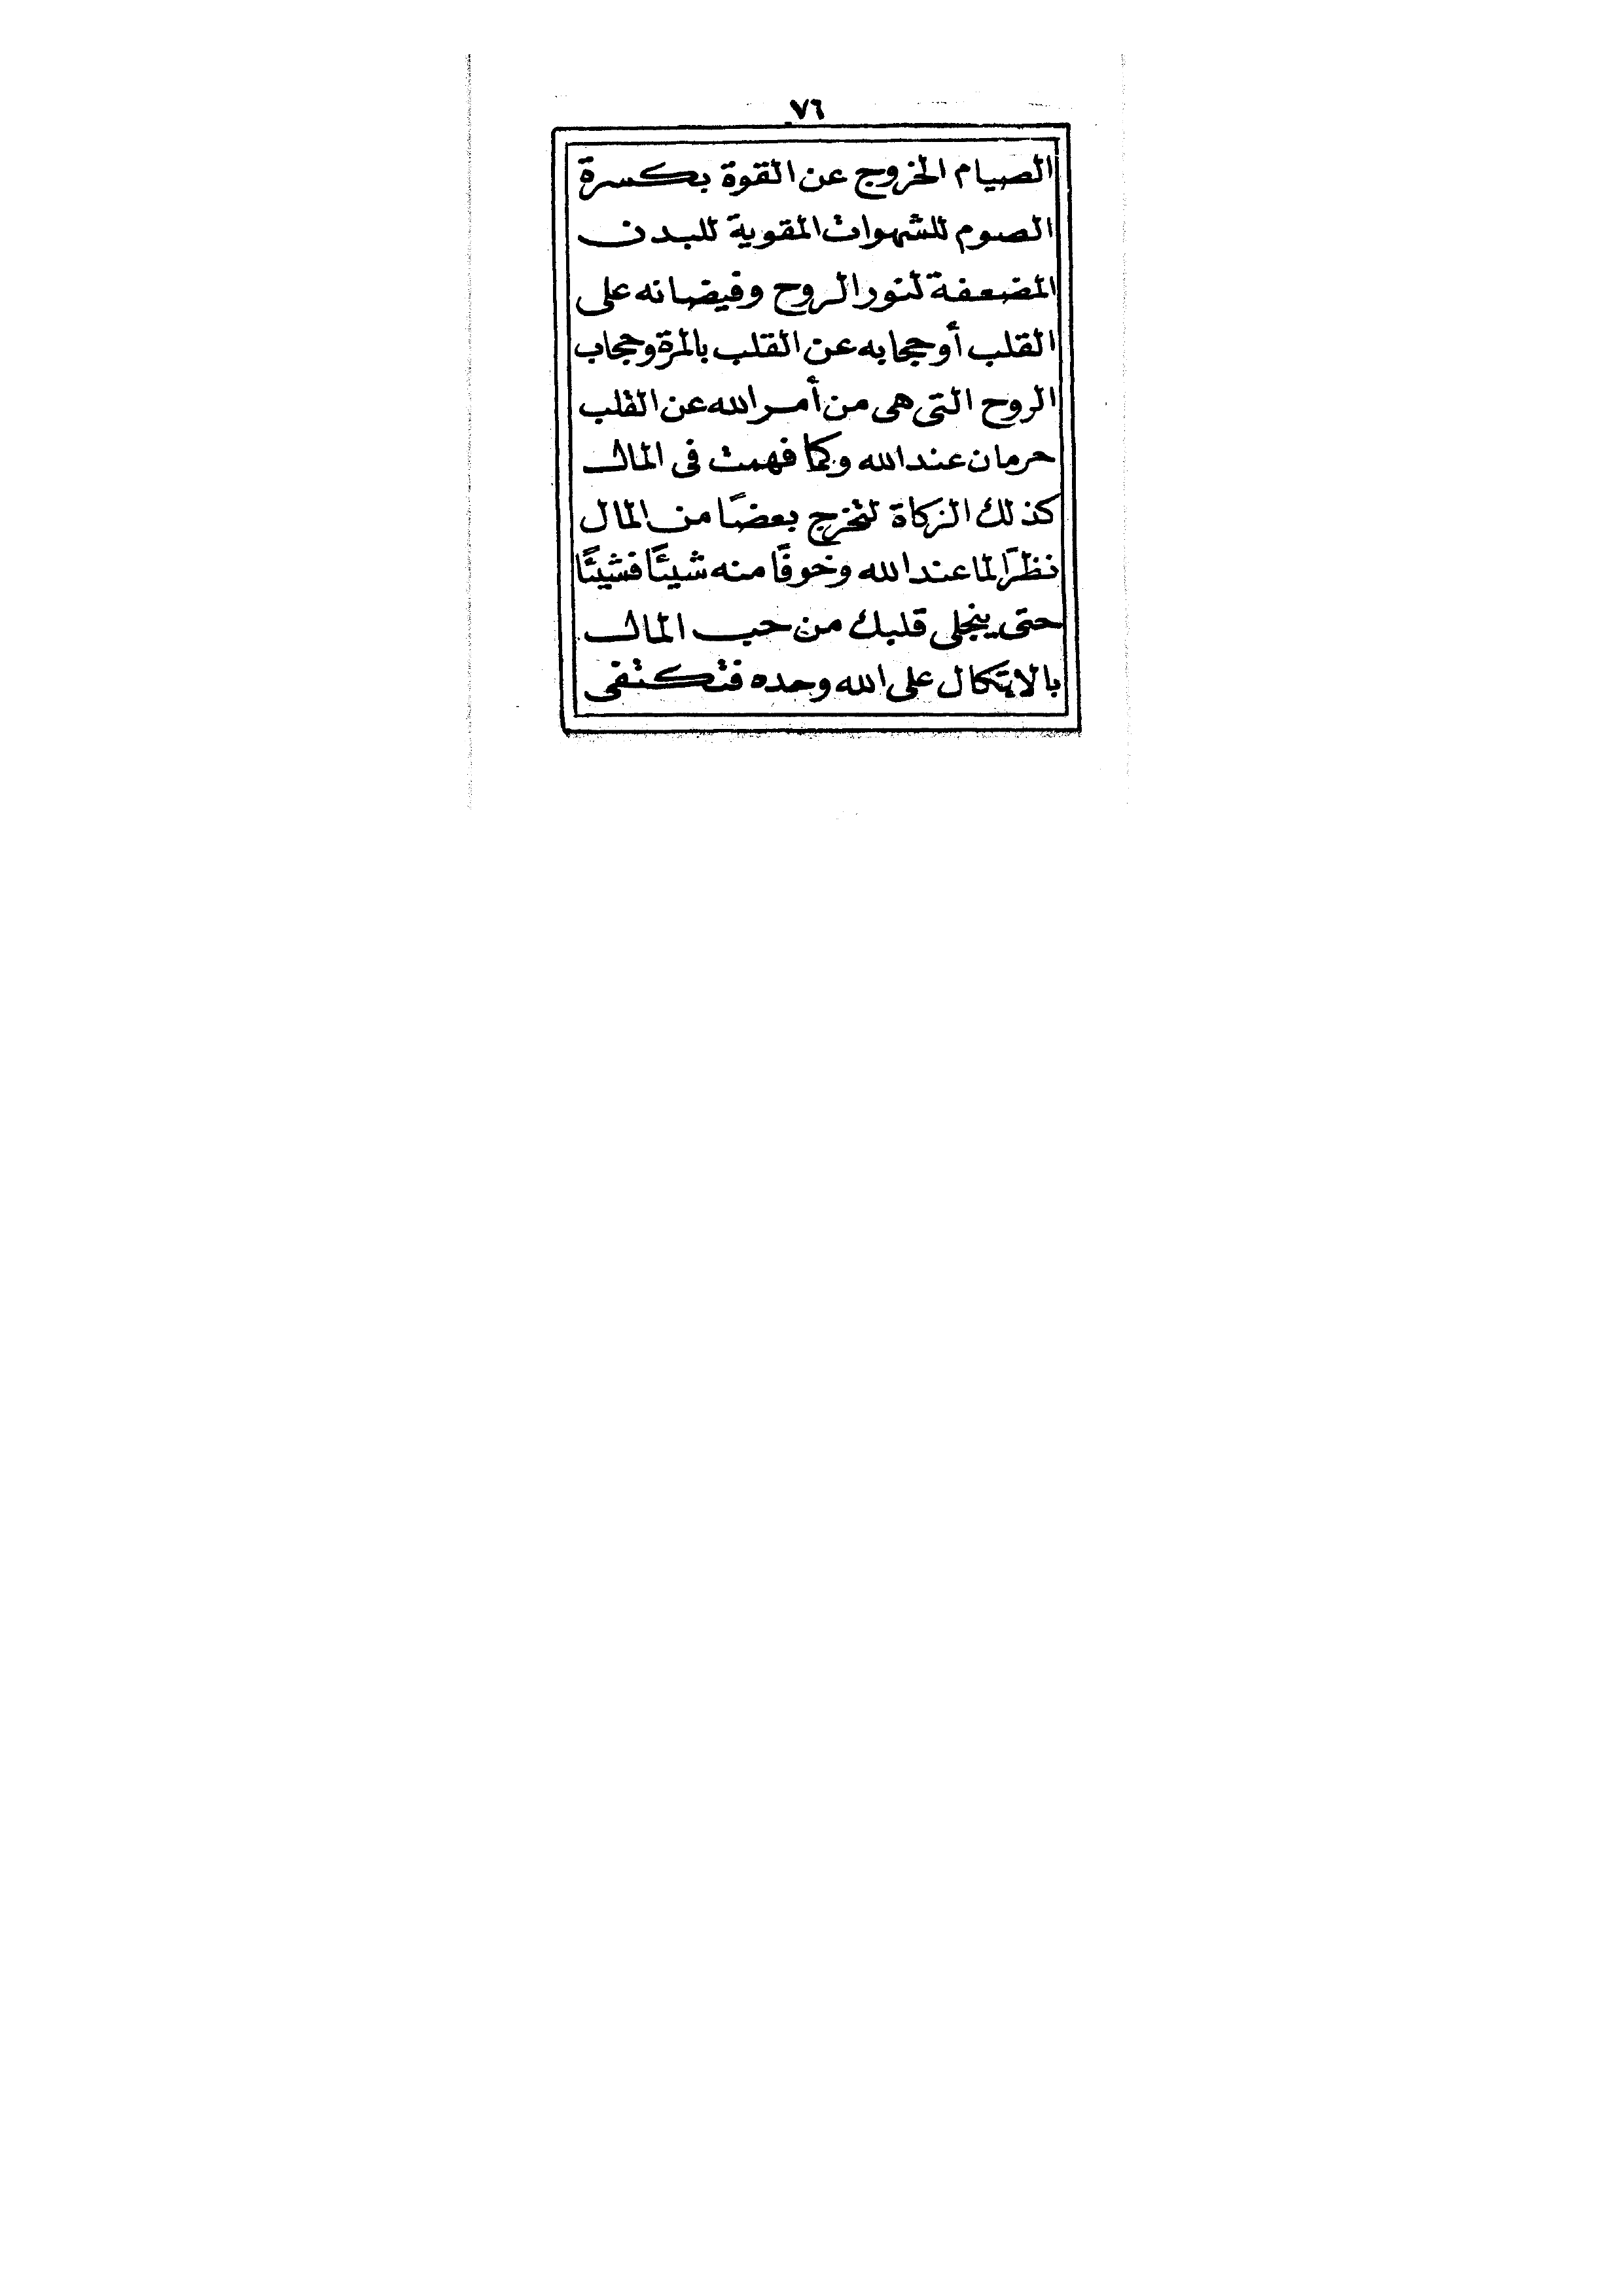 ٧٦
الصيام الخروج عن القوة بكسرة
الصوم للشهوات المقوية للبدن
المضعفة لنور الروح وفيضانه على
القلب أو حجابه عن القلب بالمرة وحجاب
الروح التى هى من أمر الله عن القلب
حرمان عند الله وكما فهمت فى المال
كذلك الزكاة لتخرج بعضًا من المال
نظرًا لما عند الله وخوفًا منه شيئًا فشيئًا
حتى ينجلى قلبك من حب المال
بالاتكال على الله وحده فتكتفى